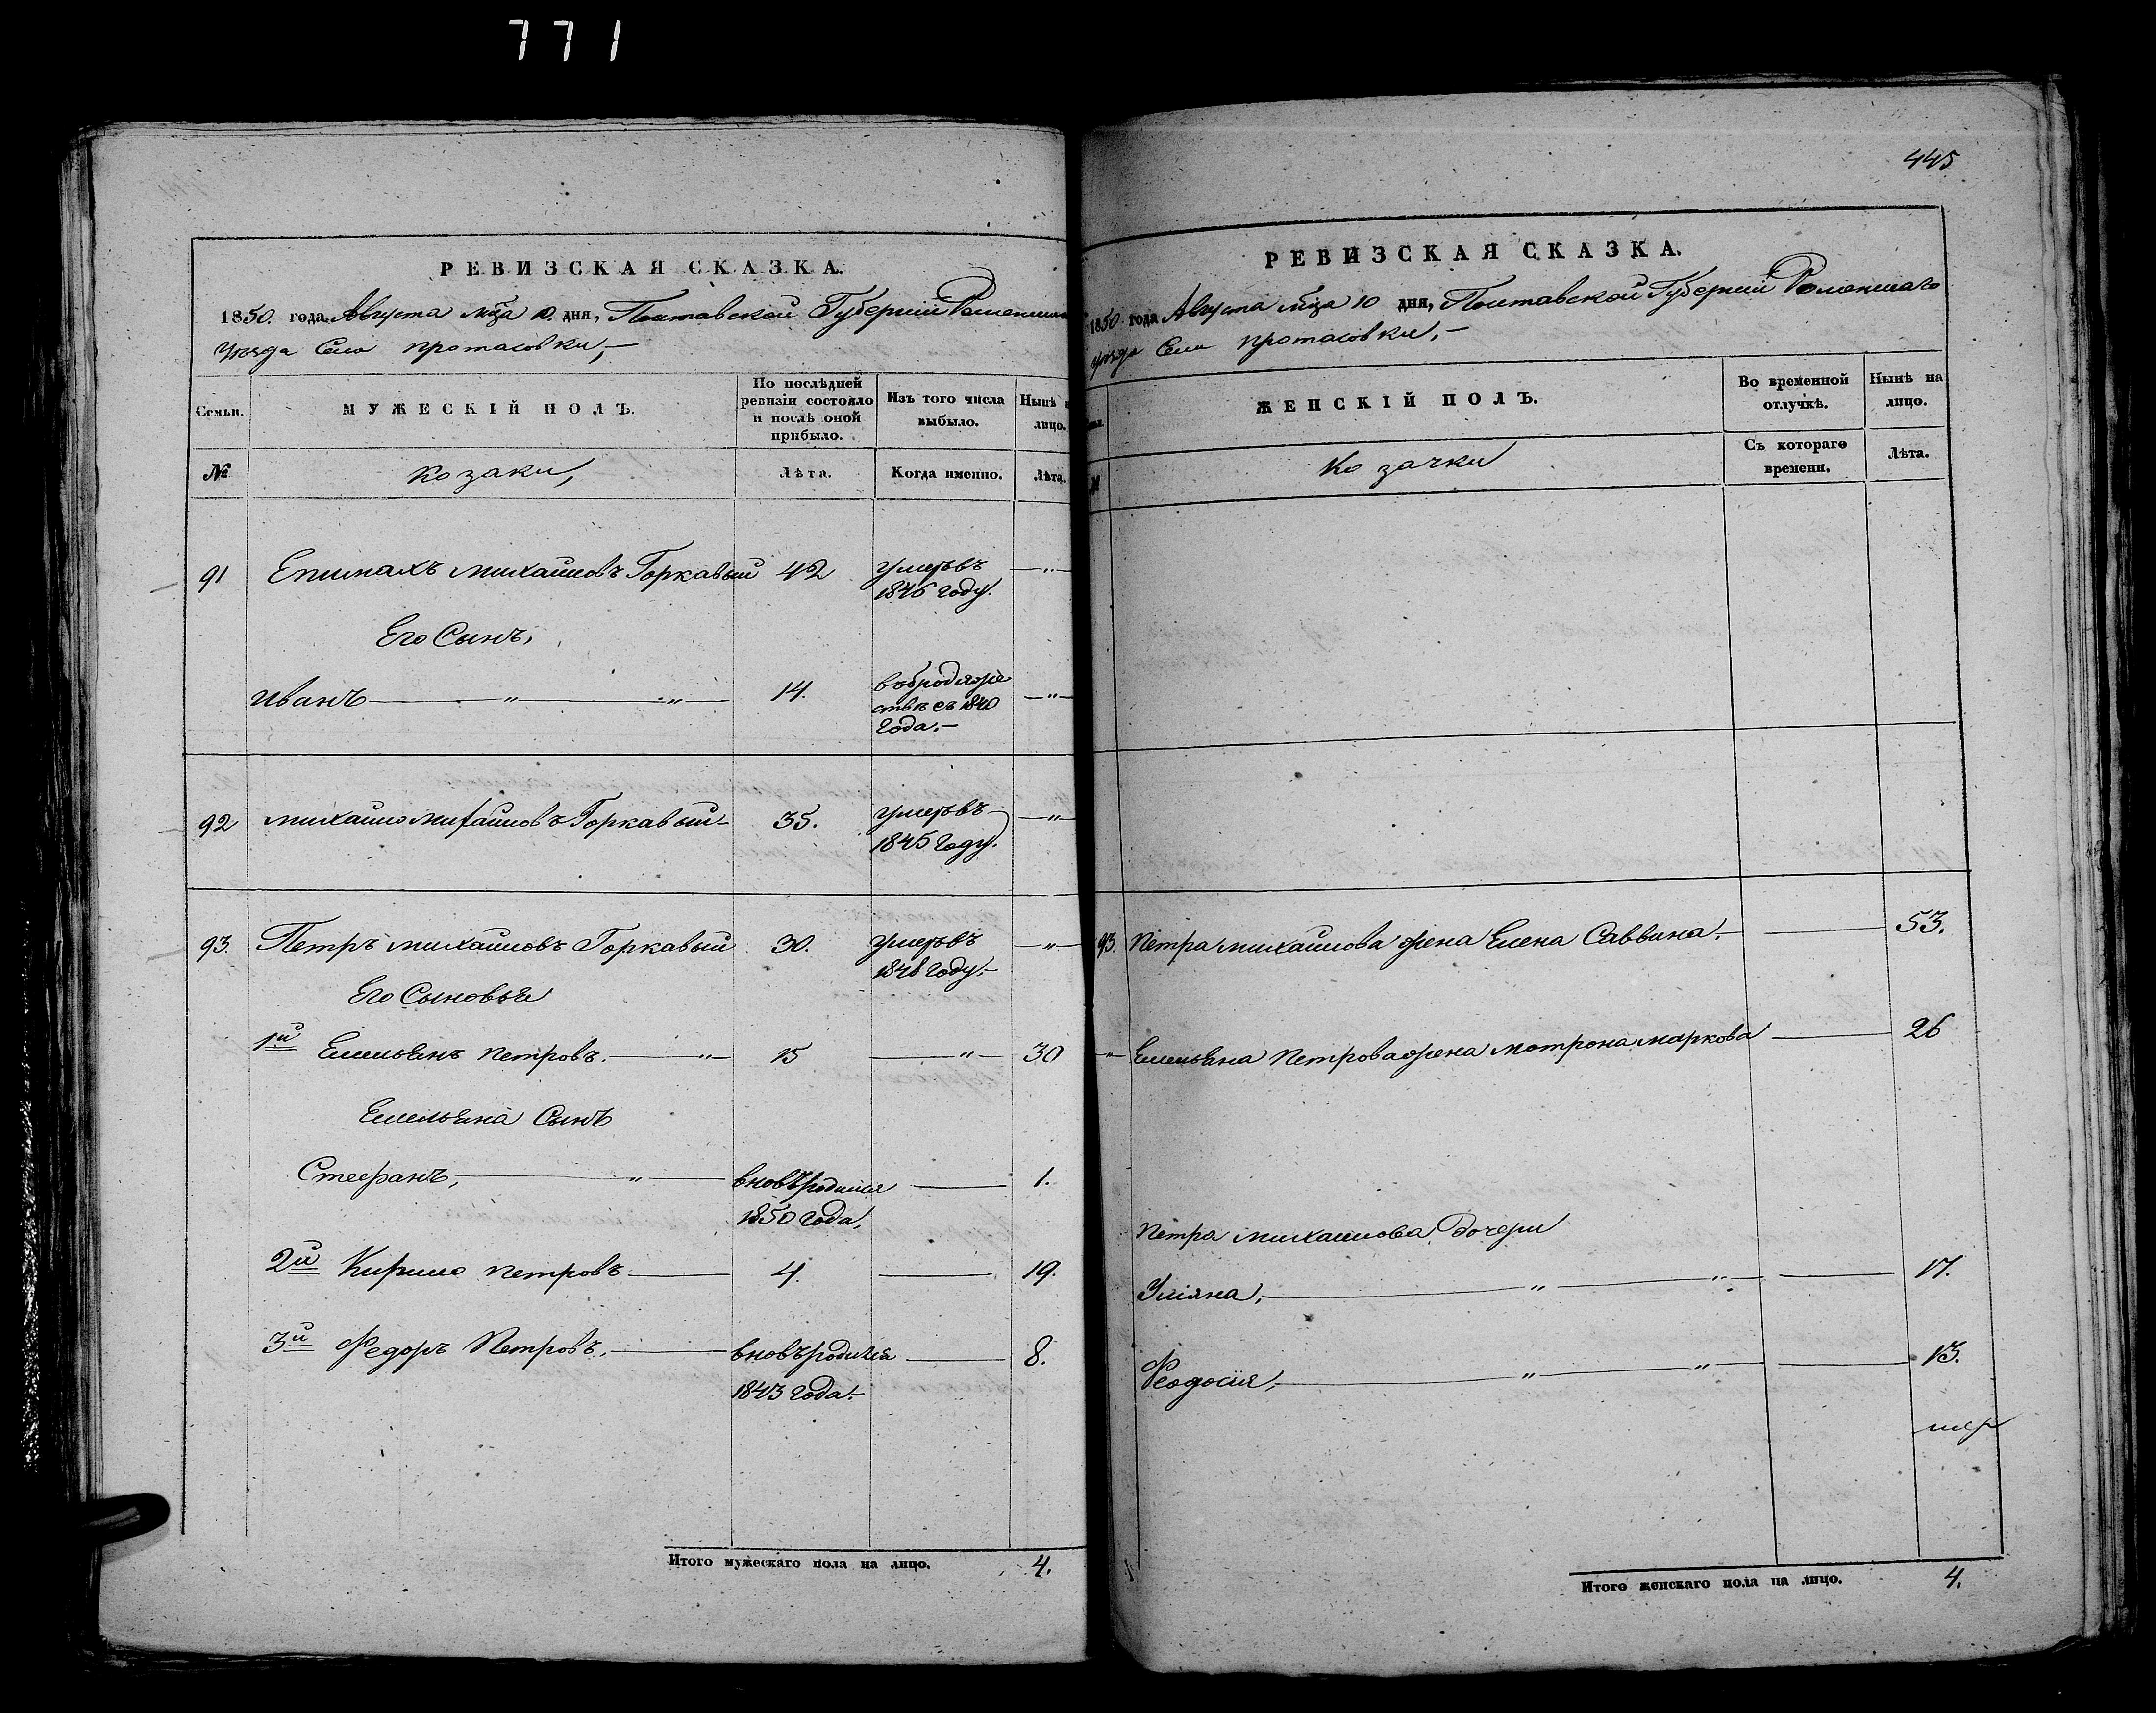 771
РЕВИЗСКАЯ СКАЗКА.
1850. года Августа мца 10. дня, Полтавской Губернии Роменскаго
Уезда Села Протасовки,—
Семьи.
МУЖЕСКІЙ ПОЛЪ.
По послѣдней ревизіи состояло и послѣ оной прибыло.
Изъ того числа выбыло.
Нынѣ на лицо.
№
Козаки,
Лѣта.
Когда именно.
Лѣта.
91 Епимахъ Михайловъ Горкавый 42 умеръ въ — " —
1846 году.
Его Сынъ,
Иванъ — " — " — 14. въ бродяже — " —
ствѣ съ 1840
года.—
92 Михайло Михайловъ Горкавый— 35. умеръ въ — " —
1845 году.
93. Петръ Михайловъ Горкавый 30. умеръ въ — " —
1848 году.—
Его Сыновья
1й Емельянъ Петровъ. — " — 15 — " — 30
Емельяна Сынъ
Стефанъ, — " — вновь родился — 1.
1850 года.
2й Кирило Петровъ — 4. — 19.
3й Федоръ Петровъ. — вновь родился — 8.
1843 года.—
Итого мужескаго пола на лицо. 4.
445
РЕВИЗСКАЯ СКАЗКА.
1850 года Августа мца 10 дня, Полтавской Губернии Роменскаго
уезда Села Протасовки.—
ЖЕНСКІЙ ПОЛЪ.
Во временной отлучкѣ.
Нынѣ на лицо.
№
Козачки
Съ котораго времени.
Лѣта.
93. Петра Михайлова жена Елена Саввина.— — 53.
— " — Емельяна Петрова жена Мотрона Маркова — 26
Петра Михайлова Дочери
Уліяна, — " — " — — 17.
Феодосія, — " — " — — 13.
Итого женскаго пола на лицо. 4.